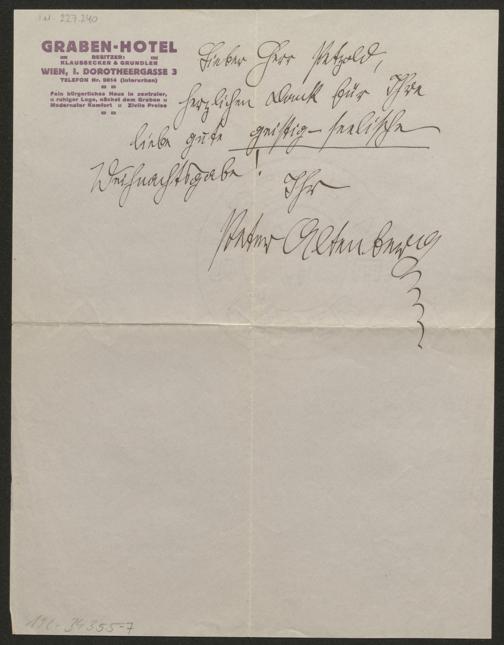 I.N. 227.240
GRABEN-HOTEL
BESITZER:
KLAUSBECKEN & GRUNDLER
WIEN, I. DOROTHEERGASSE 3
TELEFON Nr. 9814 (Interurban)
Fein bürgerliches Haus in zentraler,
ruhiger Lage, nächst dem Graben
Modernster Komfort Zivile Preise
Lieber Herr Petzold,
herzlichen Dank für Ihre
liebe gute geistig-seelische
Weihnachtsgabe!
Ihr
Peter Altenberg